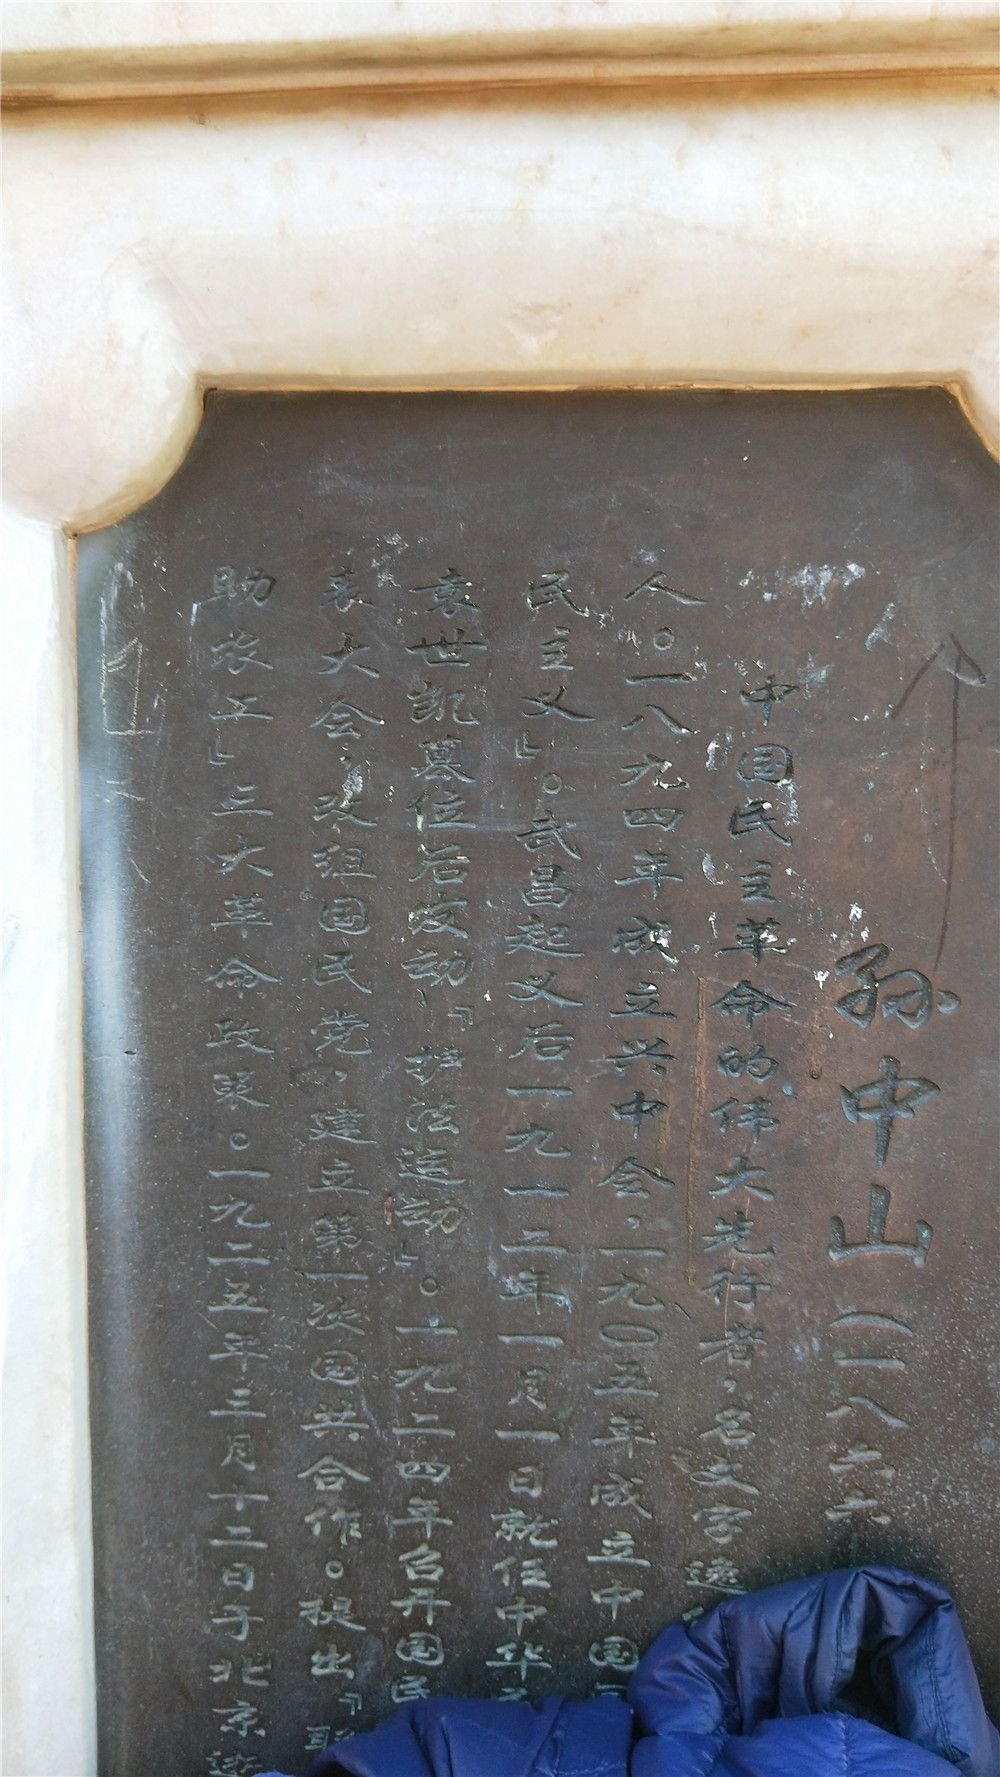 孙中山（一八六六
中国民主革命的伟大先行者，名文字逸
人。一八九四年成立兴中会，一九〇五年成立中国
民主义』。武昌起义后一九一二年一月一日就任中华
袁世凯墓位后发动『护法运动』。一九二四年召开国民
表大会，改组国民党，建立第一次国共合作。提出『联
助农工』三大革命政策。一九二五年三月十二日于北京逝